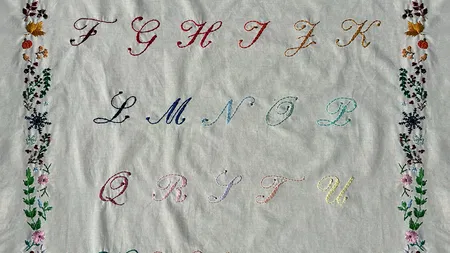 F G H I J K
L M N O P
Q R S T U